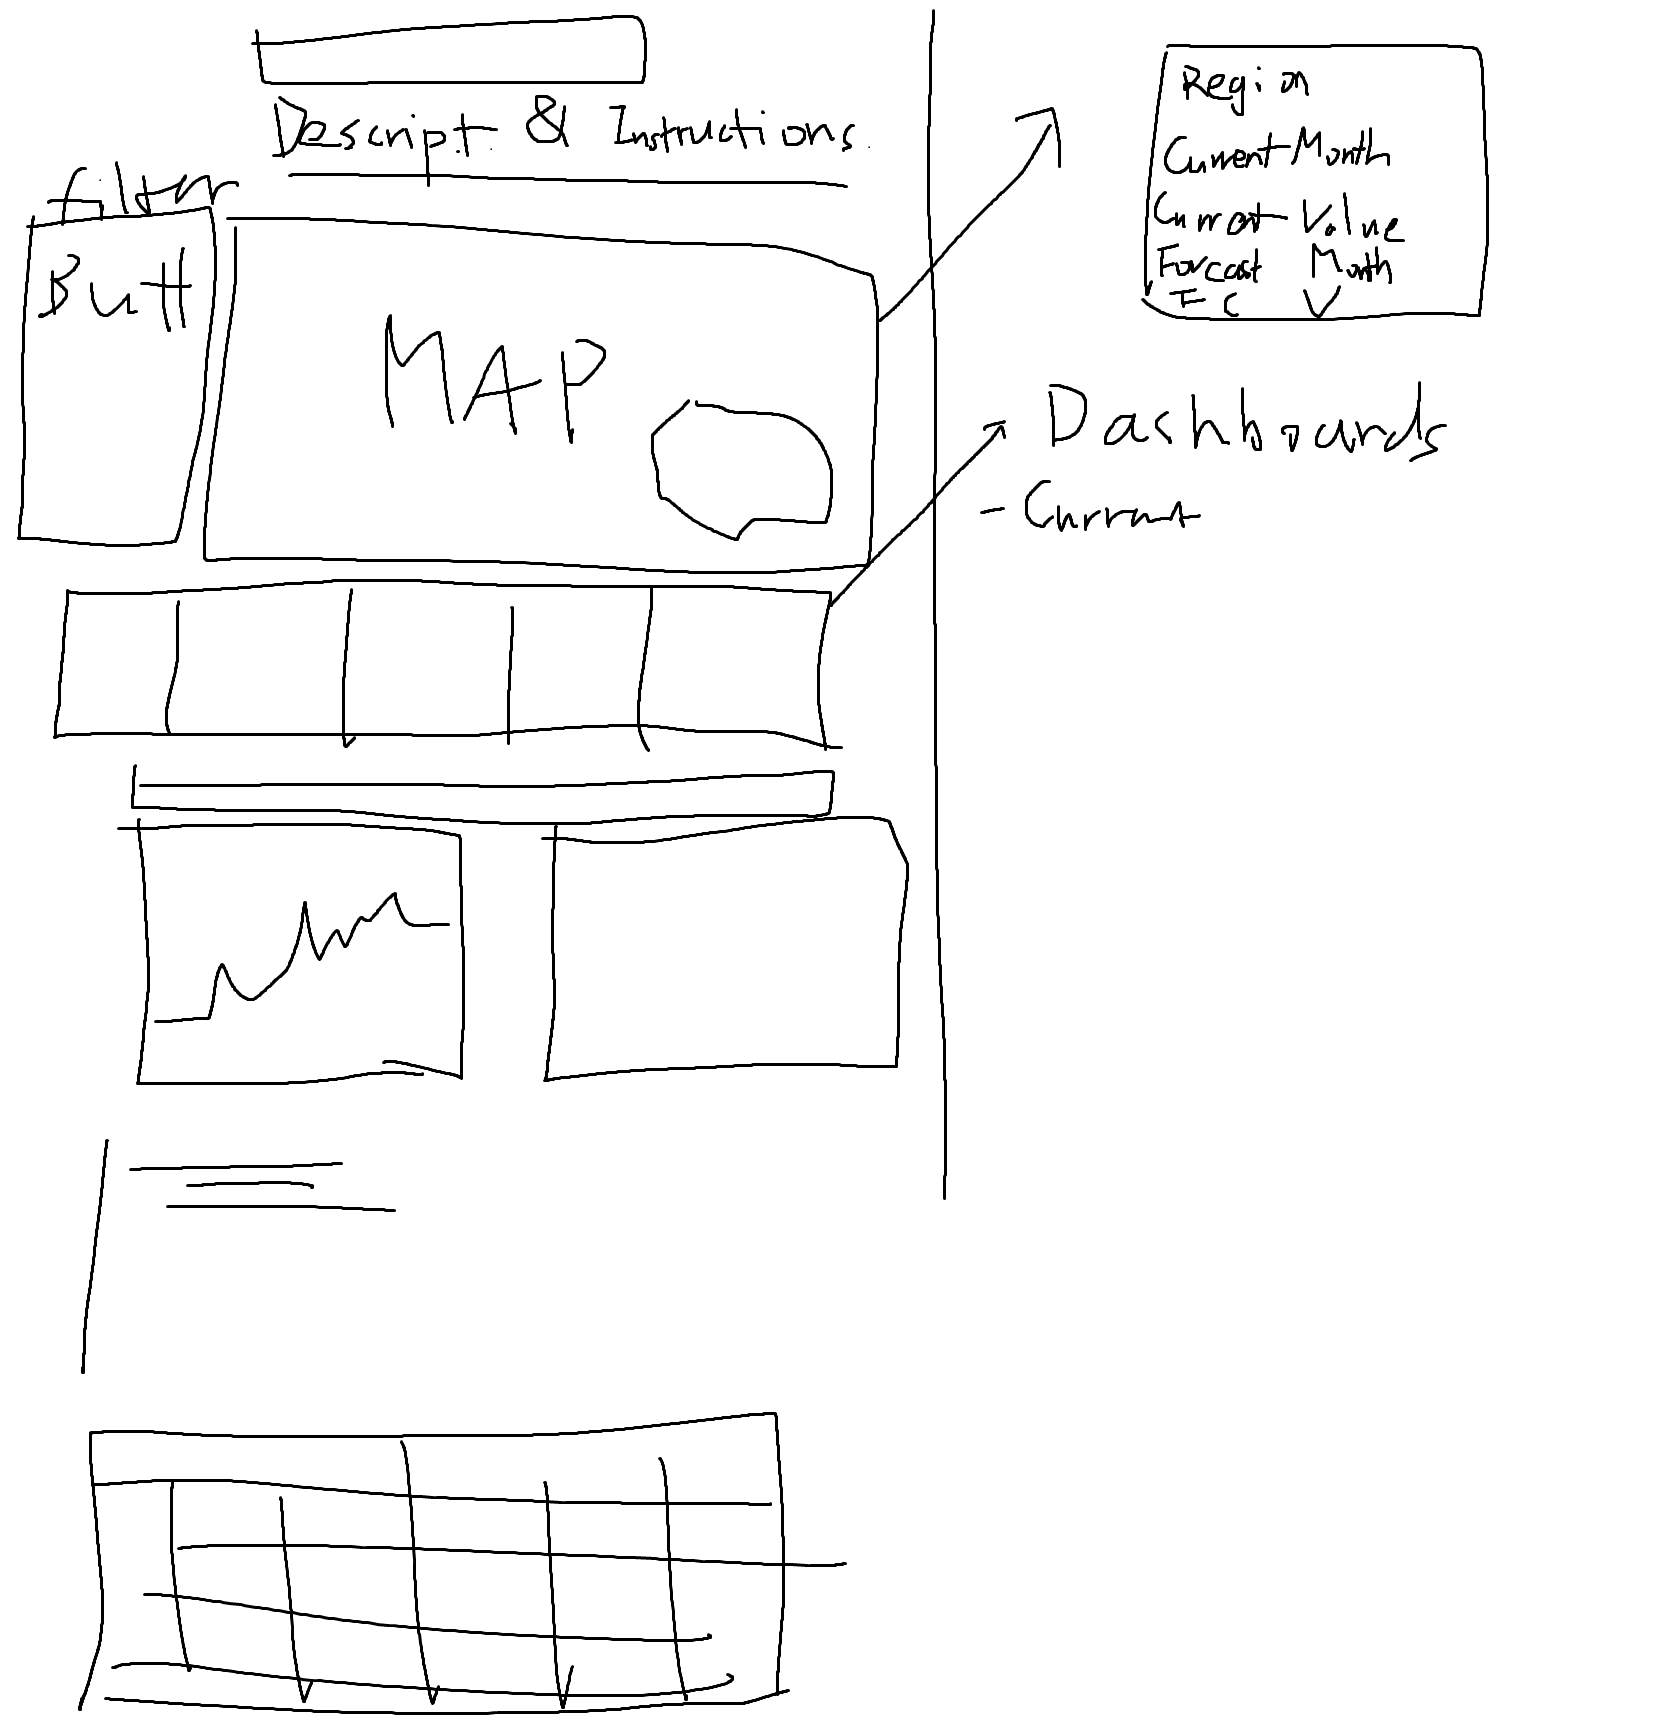 Descript & Instructions
filter
Butt
MAP
Region
Current Month
Current Value
Forcast Month
FC V
Dashboards
- Current